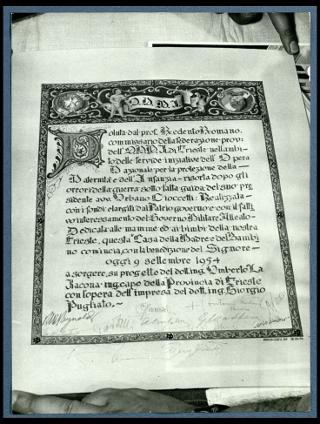 O.N.M.I.
Voluta dal prof. Redento Romano,
commissario della federazione prov.
dell'ONMI di Trieste nell'ambi-
to delle fervide iniziative dell'Opera
Nazionale per la protezione della
Maternità e dell'Infanzia risorta dopo gli
orrori della guerra sotto la guida del suo pre
sidente avv. Urbano Cioccetti: Realizzata
con i fondi elargiti dal Patrio governo e con il fatti
vo interessamento del Governo Militare Alleato
Dedicata alle mamme ed ai bimbi della nostra
Trieste, questa Casa della Madre e del Bambi
no comincia, con la benedizione del Signore
oggi 9 settembre 1954
a sorgere, su progetto del dott. ing. Umberto La
Jacona ing. capo della Provincia di Trieste
con l'opera dell'impresa del dott. ing. Giorgio
Pugliato